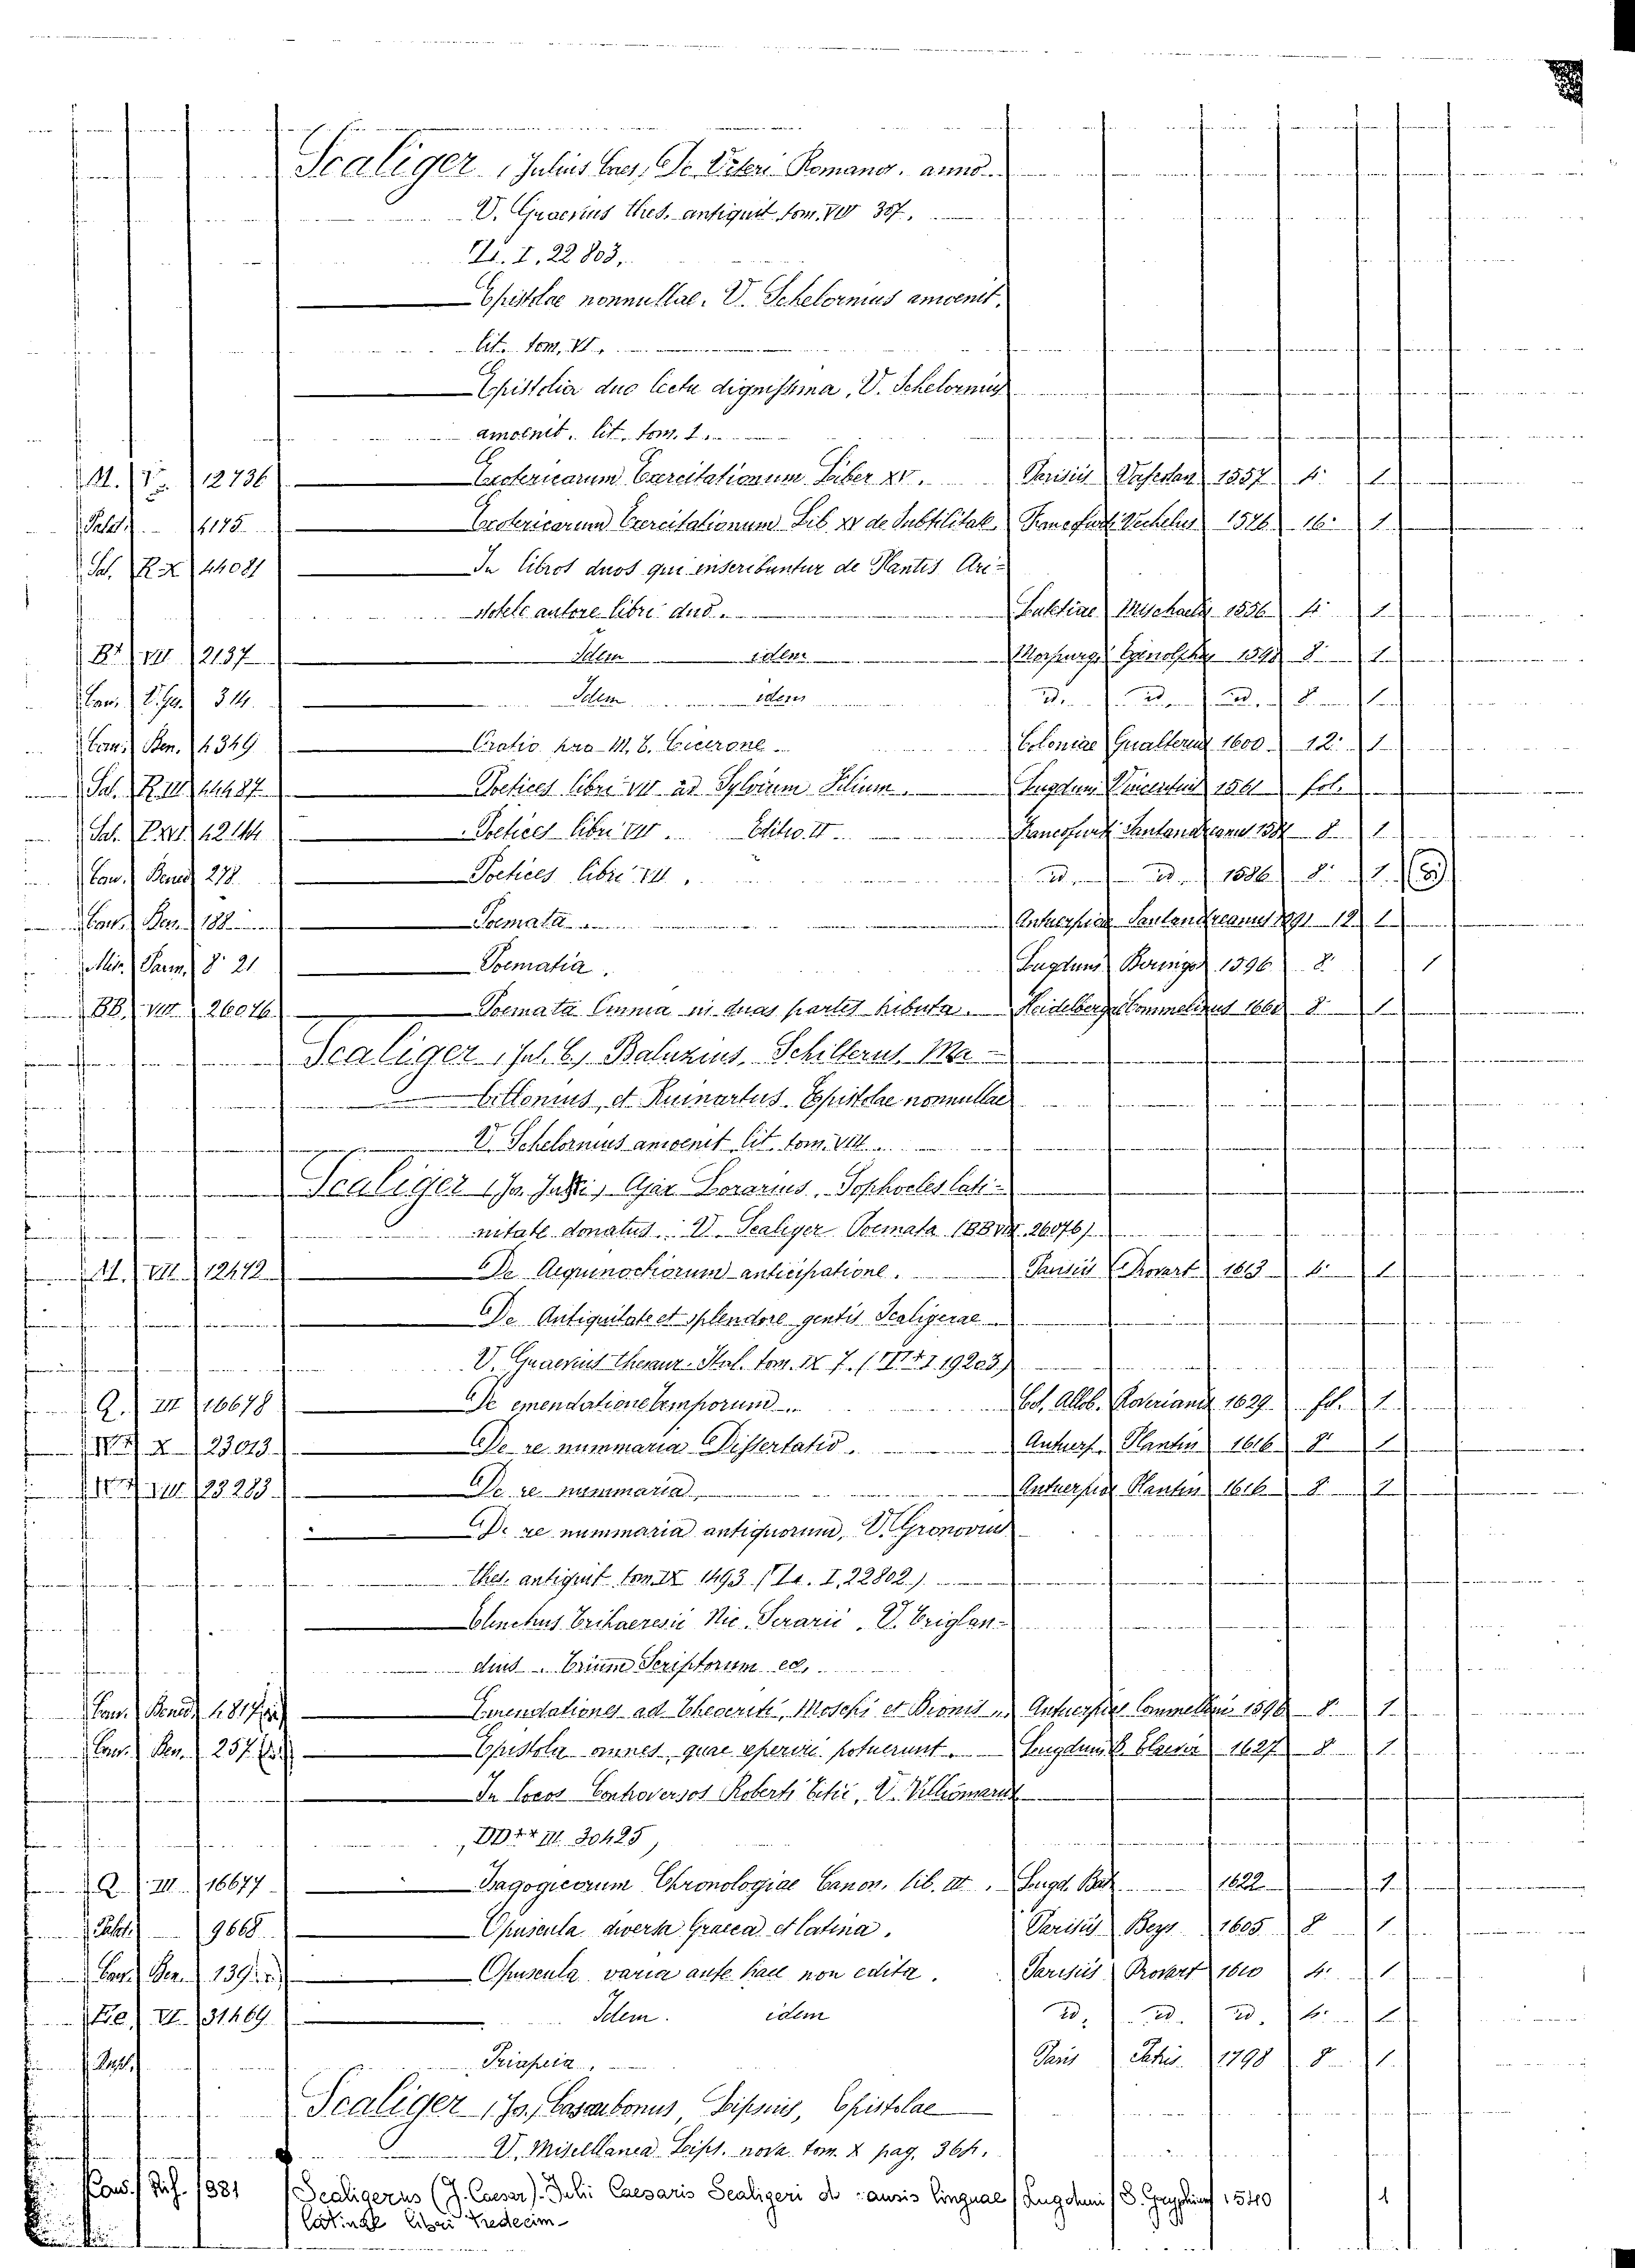 Scaliger, Julius Caes, De Veteri Romanor. anno
V. Graevius thes. antiquit tom. VIII 307.
I, 22803,
Epistolae nonnullae. V. Schelornius amoenit.
lit. tom. VI.
Epistolia duo lectu dignissima, V. Schelornius
amoenit. lit. tom. I.
M. 12736 Exotericarum Exercitationum Liber XV. Parisiis Vascosan 1557 4° 1
Palat. 4175 Exotericarum Exercitationum Lib XV de Subtilitate Francfurt Vechelus 1576 16° 1
Sal. R. X 44081 In libros duos qui inscribuntur de Plantis Ari-
stotele autore libri duo. Lutetiae Michaelis 1556 4° 1
B² VIII 12137 Idem idem Marpurgi Egenolphus 1598 8° 1
Can. 314. Idem idem id. id. id. 8 1
Can. Ben. 4349 Oratio pro M. T. Cicerone. Coloniae Gualterus 1600 12° 1
Sal. R. III 44487 Poetices libri VII ad Sylvium Filium. Lugduni Vincentius 1561 fol.
Sal. 42144 Poetices libri VII. Editio II. Francofurti Santandreanus 1581 8 1
Can. Bened 278 Poetices libri VII. id. id. 1586 8° 1
Can. Ben. 188 Poemata Antuerpiae Santandreanus 1591 12 1
Min. Parm. 8° 21 Poematia. Lugduni Beringos 1596 8° 1
BB. VIII 26076 Poemata Omnia in duas partes tributa. Heidelbergae Commelinus 1600 8 1
Scaliger, Jul. C., Baluzius, Schilterus, Ma-
billonius, et Ruinartus. Epistolae nonnullae
V. Schelornius amoenit lit. tom. VIII.
Scaliger, Jo. Justi, Ajax Lorarius. Sophocles lati-
nitate donatus. V. Scaliger Poemata (BB VIII. 26076)
M. VII. 12472 De Aequinoctiorum anticipatione. Parisiis Drovart 1613 4° 1
De Antiquitate et splendore gentis Scaligerae
V. Graevius thesaur. Ital. tom. IX 7. 19203)
Q. III 16678 De emendatione temporum. Col. Allob. Roveriana 1629 fol. 1
X 23013 De re nummaria Dissertatio. Antuerp. Plantin 1616 8° 1
23283 De re nummaria, Antuerpiae Plantin 1616 8 1
De re nummaria antiquorum, V. Gronovius
thes. antiquit tom. IX 1493 I, 22802.)
Elenchus Trihaeresii Nic. Serarii. V. Triglan-
dius. Trium Scriptorum ed.
Can. Bened. 4817 Emendationes ad Theocriti, Moschi et Bionis Antuerpiae Commelini 1596 8° 1
Can. Ben. 257 Epistolae omnes, quae reperiri potuerunt. Lugduni B. Elzevir 1627 8 1
In locos Controversos Roberti Titii, V. Villiomarus
DD** III. 30425,
Q. III. 16677 Isagogicorum Chronologiae Canon. lib. III. Lugd. Bat. 1622 1
Palat. 9668 Opuscula diversa Graeca et latina. Parisiis Beys 1605 8 1
Can. Ben. 139 Opuscula varia ante hac non edita. Parisiis Drovart 1610 4° 1
VI. 31469 Idem. idem id. id. id. 4° 1
Priapeia, Paris Patris 1798 8 1.
Scaliger, Jo., Casaubonus, Lipsius, Epistolae
V. Miscellanea Leips. nova tom. X pag. 364.
Can. 1381 Scaligerus (J. Caesar). Julii Caesaris Scaligeri de causis linguae Lugduni S. Gryphius 1540 1
latinae libri tredecim